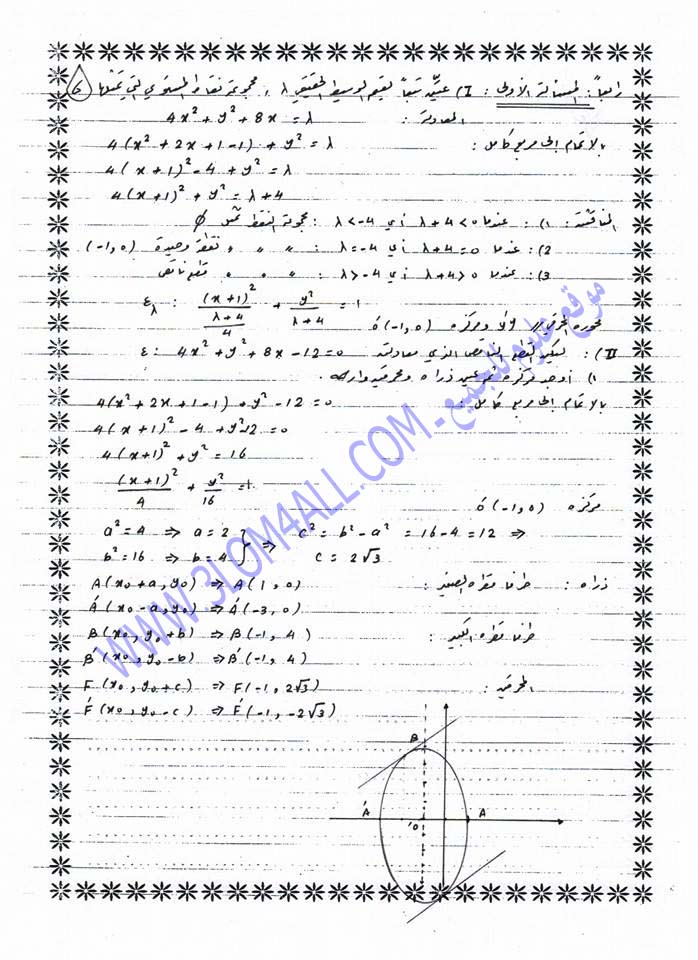 رابعاً: المسألة الأولى: I) عيّن تبعاً لقيم الوسيط الحقيقي λ، مجموعة نقاط المستوي التي تمثلها 6
المعادلة: 4x² + y² + 8x = λ
بالاتمام الى مربع كامل: 4(x² + 2x + 1 - 1) + y² = λ
4(x + 1)² - 4 + y² = λ
4(x + 1)² + y² = λ + 4
المناقشة: 1): عندما λ + 4 < 0 أي λ < -4 : مجموعة النقط تمثل ϕ
2): عندما λ + 4 = 0 أي λ = -4 : " " " نقطة وحيدة (-1, 0)
3): عندما λ + 4 > 0 أي λ > -4 : " " " قطع ناقص
ε_λ : (x + 1)² / ((λ + 4)/4) + y² / (λ + 4) = 1
محوره المحرقي // y'y ومركزه O'(-1, 0)
II): ليكن القطع الناقص الذي معادلته ε: 4x² + y² + 8x - 12 = 0
1) أوجد مركزه ثم عين ذراه ومحرقيه وارسمه.
بالاتمام الى مربع كامل: 4(x² + 2x + 1 - 1) + y² - 12 = 0
4(x + 1)² - 4 + y² - 12 = 0
4(x + 1)² + y² = 16
(x + 1)² / 4 + y² / 16 = 1
مركزه O'(-1, 0)
a² = 4 ⇒ a = 2 } ⇒ c² = b² - a² = 16 - 4 = 12 ⇒
b² = 16 ⇒ b = 4 } c = 2√3
ذراه: طرفا قطره الصغير: A(x₀ + a, y₀) ⇒ A(1, 0)
A'(x₀ - a, y₀) ⇒ A'(-3, 0)
طرفا قطره الكبير: B(x₀, y₀ + b) ⇒ B(-1, 4)
B'(x₀, y₀ - b) ⇒ B'(-1, 4)
المحرقين: F(x₀, y₀ + c) ⇒ F(-1, 2√3)
F'(x₀, y₀ - c) ⇒ F'(-1, -2√3)
B
A'
O'
A
WWW.3LOM4ALL.COM - موقع علوم للجميع